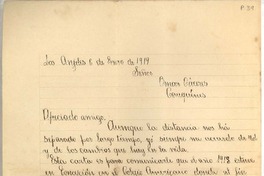 P. 39
Los Anjeles 6 de Enero de 1919
Señor
Omar Cáceres
Cauquenes
Apreciado amigo:
Aunque la distancia nos há
separado por largo tiempo, yo siempre me acuerdo de tí
y de los cambios que hay en la vida.
Esta carta es para comunicarle que el año 1918 estuve
en Concepción en el Colejio Americano donde al fin